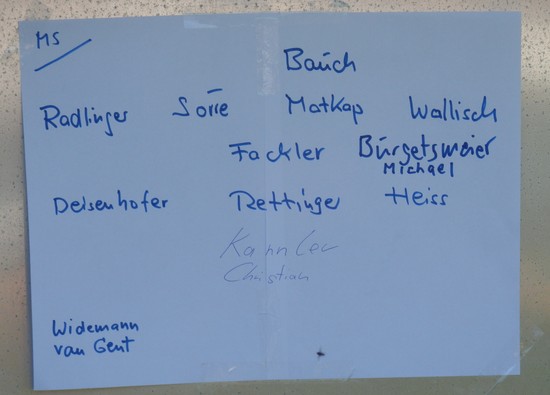 MS
Bauch
Radlinger Sorre MatKap Wallisch
Fackler Burgetsmeier
Michael
Deisenhofer Rettinger Heiss
Kannler
Christian
Widemann
van Gent